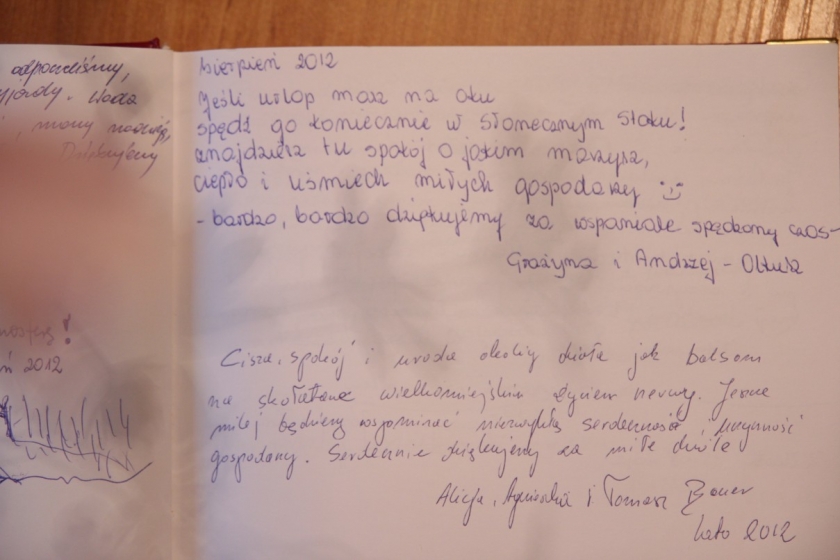 odpoczęliśmy,
Woda
, mamy nadzieję,
Dziękujemy
!
ń 2012
Sierpień 2012
Jeśli urlop masz na oku
spędź go koniecznie w Słonecznym Stoku!
znajdziesz tu spokój o jakim marzysz,
ciepło i uśmiech miłych gospodarzy :)
- bardzo, bardzo dziękujemy za wspaniale spędzony czas -
Grażyna i Andrzej - Olkusz
Cisza, spokój i uroda okolicy działa jak balsam
na skołatane wielkomiejskim życiem nerwy. Jeszcze
milej będziemy wspominać niezwykłą serdeczność i uczynność
gospodarzy. Serdecznie dziękujemy za miłe chwile
Alicja, Agnieszka i Tomasz Bauer
Lato 2012